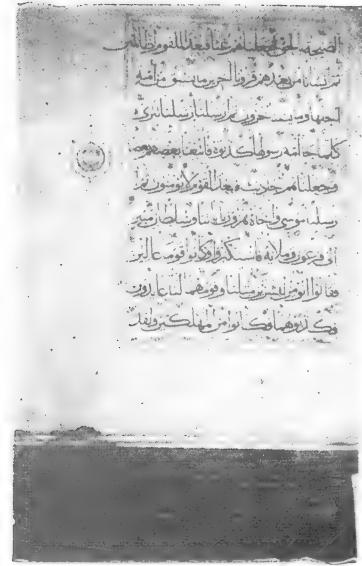 الصيحة بالحق فجعلناهم غثاء فبعدا للقوم الظالمين
ثم انشانا من بعدهم قرونا اخرين ما تسبق من امة
اجلها وما يستاخرون ثم ارسلنا رسلنا تترى
كلما جا امة رسولها كذبوه فاتبعنا بعضهم بعضا
وجعلناهم احاديث فبعدا لقوم لا يومنون ثم
ارسلنا موسى واخاه هرون باياتنا وسلطان مبين
الى فرعون وملائه فاستكبروا وكانوا قوما عالين
فقالوا انومن لبشرين مثلنا وقومهما لنا عابدون
فكذبوهما فكانوا من المهلكين ولقد